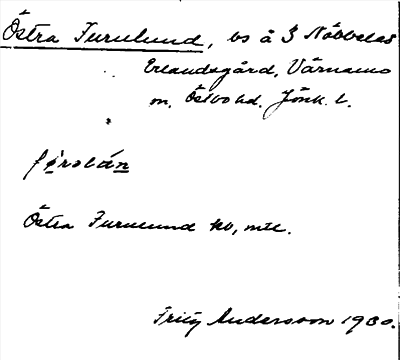 Östra Furulund, bs å 3 Nöbbelas
Erlandsgård, Värnamo
sn, Östbo hd. Jönk. l.
Östra Furulund
Fritz Andersson 1930.